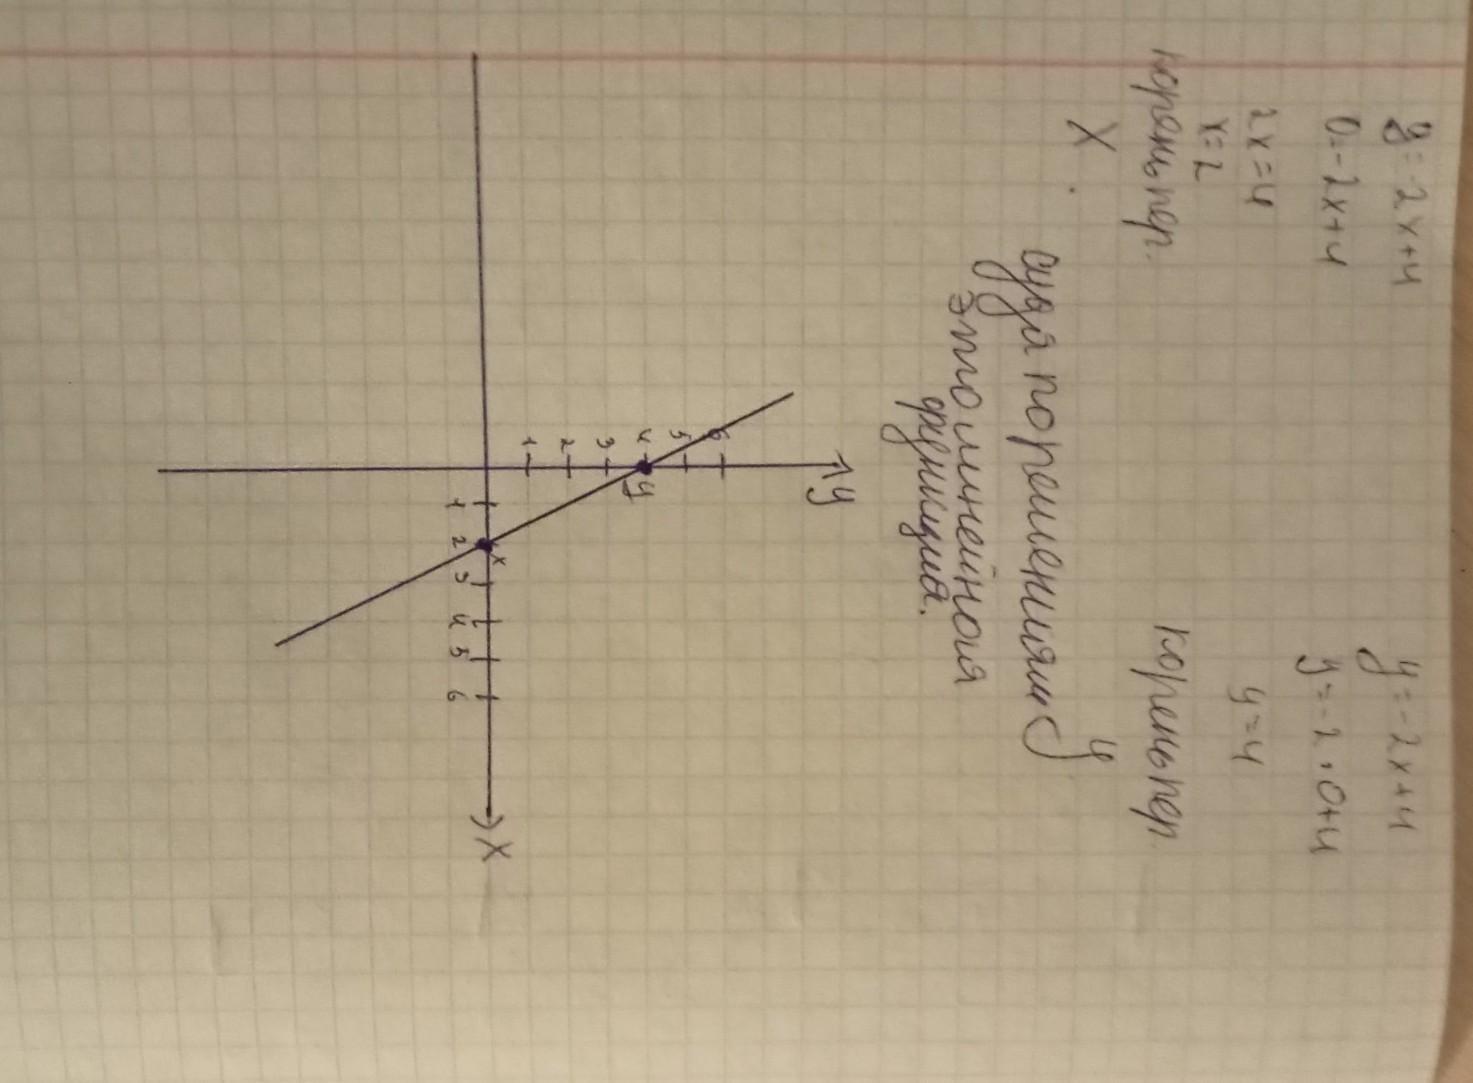 y = -2x+4
0=-2x+4
2x=4
x=2
корень пер.
X
y = -2x+4
y = -2·0+4
y=4
корень пер.
y
судя по решениям
это линейная
функция.
y
6
5
4
y
3
2
1
x
1 2 3 4 5 6
X